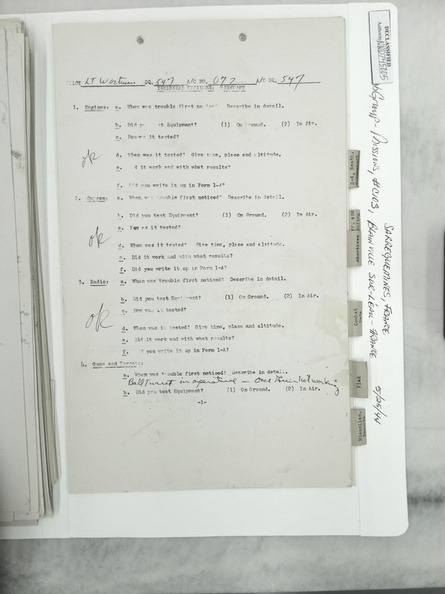 LT
SQ. 547 A/C NO. 077 A/C SQ. 547
TECHNICAL FAILURE, REPORT
1. Engines: a. When was trouble first Describe in detail.
b. Did you test Equipment? (1) On Ground. (2) In Air.
c. How was it tested?
ok
d. When was it tested? Give time, place and altitude.
e. Did it work and with what results?
f. Did you write it up in Form 1-A?
2. a. When was trouble first noticed? Describe in detail.
b. Did you test Equipment? (1) On Ground. (2) In Air.
c. How was it tested?
ok
d. When was it tested? Give time, place and altitude.
e. Did it work and with what results?
f. Did you write it up in Form 1-A?
3. Radio: a. When was trouble first noticed? Describe in detail.
b. Did you test Equipment? (1) On Ground. (2) In Air.
c. How was it tested?
ok
d. When was it tested? Give time, place and altitude.
e. Did it work and with what results?
f. you write it up in Form 1-A?
4. Guns and Turrets:
a. When was trouble first noticed? Describe in detail.
Ball turret inoperative - not working
b. Did you test Equipment? (1) On Ground. (2) In Air.
-1-
DECLASSIFIED
Authority
MISSIONS, #C103, SUR-LEAU - FRANCE
SARREGUEMINES, FRANCE
Combat
Flak